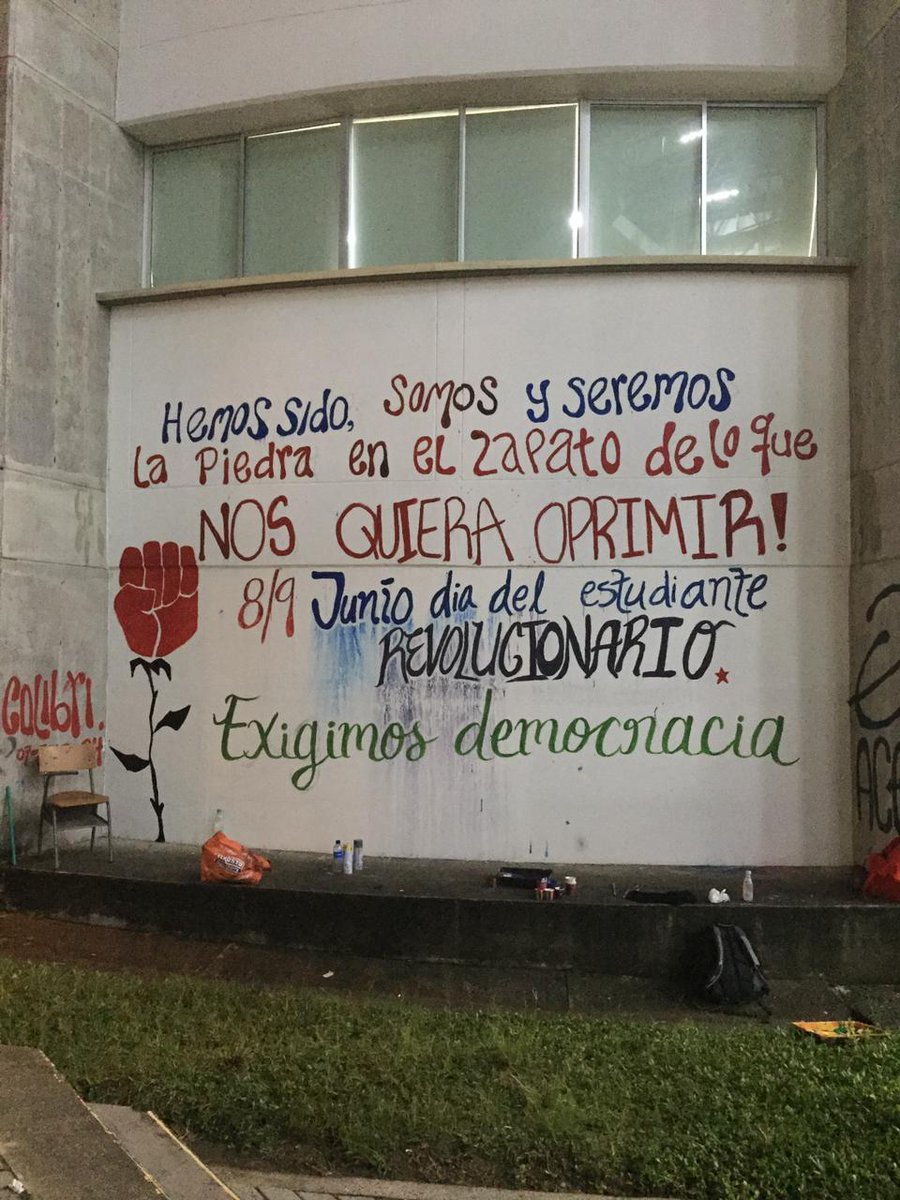 Hemos sido, somos y seremos
La Piedra en el zapato de lo que
NOS QUIERA OPRIMIR!
8/9 Junio dia del estudiante
REVOLUCIONARIO
Exigimos democracia
COLIBRI.